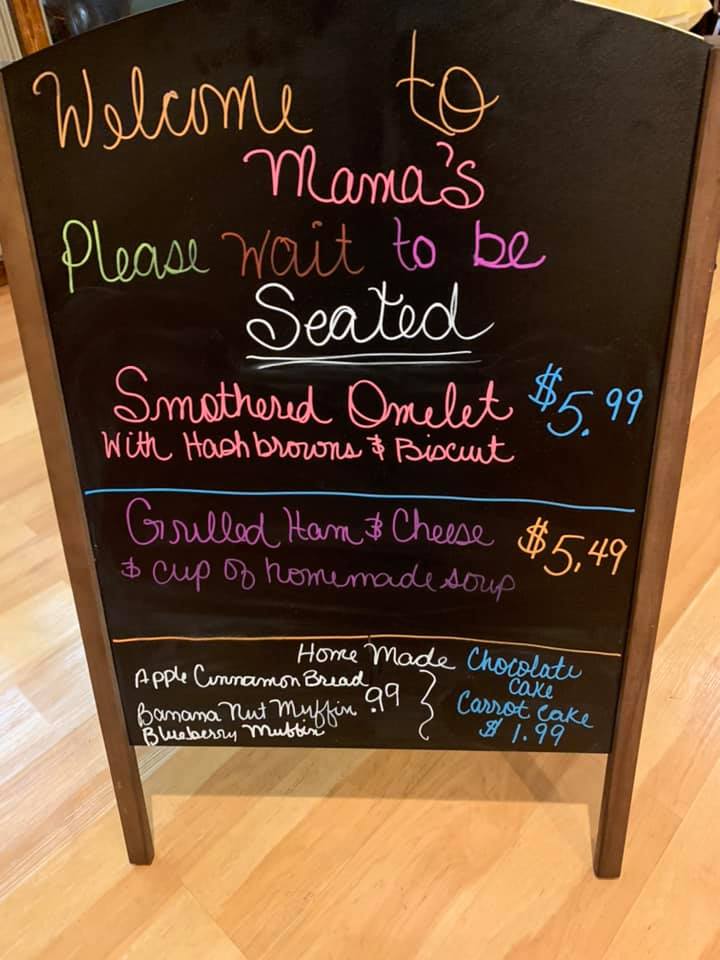 Welcome to
Mama's
Please wait to be
Seated
Smothered Omelet $5.99
With Hashbrowns & Biscuit
Grilled Ham & Cheese $5.49
& cup of homemade soup
Home Made
Apple Cinnamon Bread
Banana Nut Muffin .99
Blueberry Muffin
Chocolate
cake
Carrot cake
$ 1.99